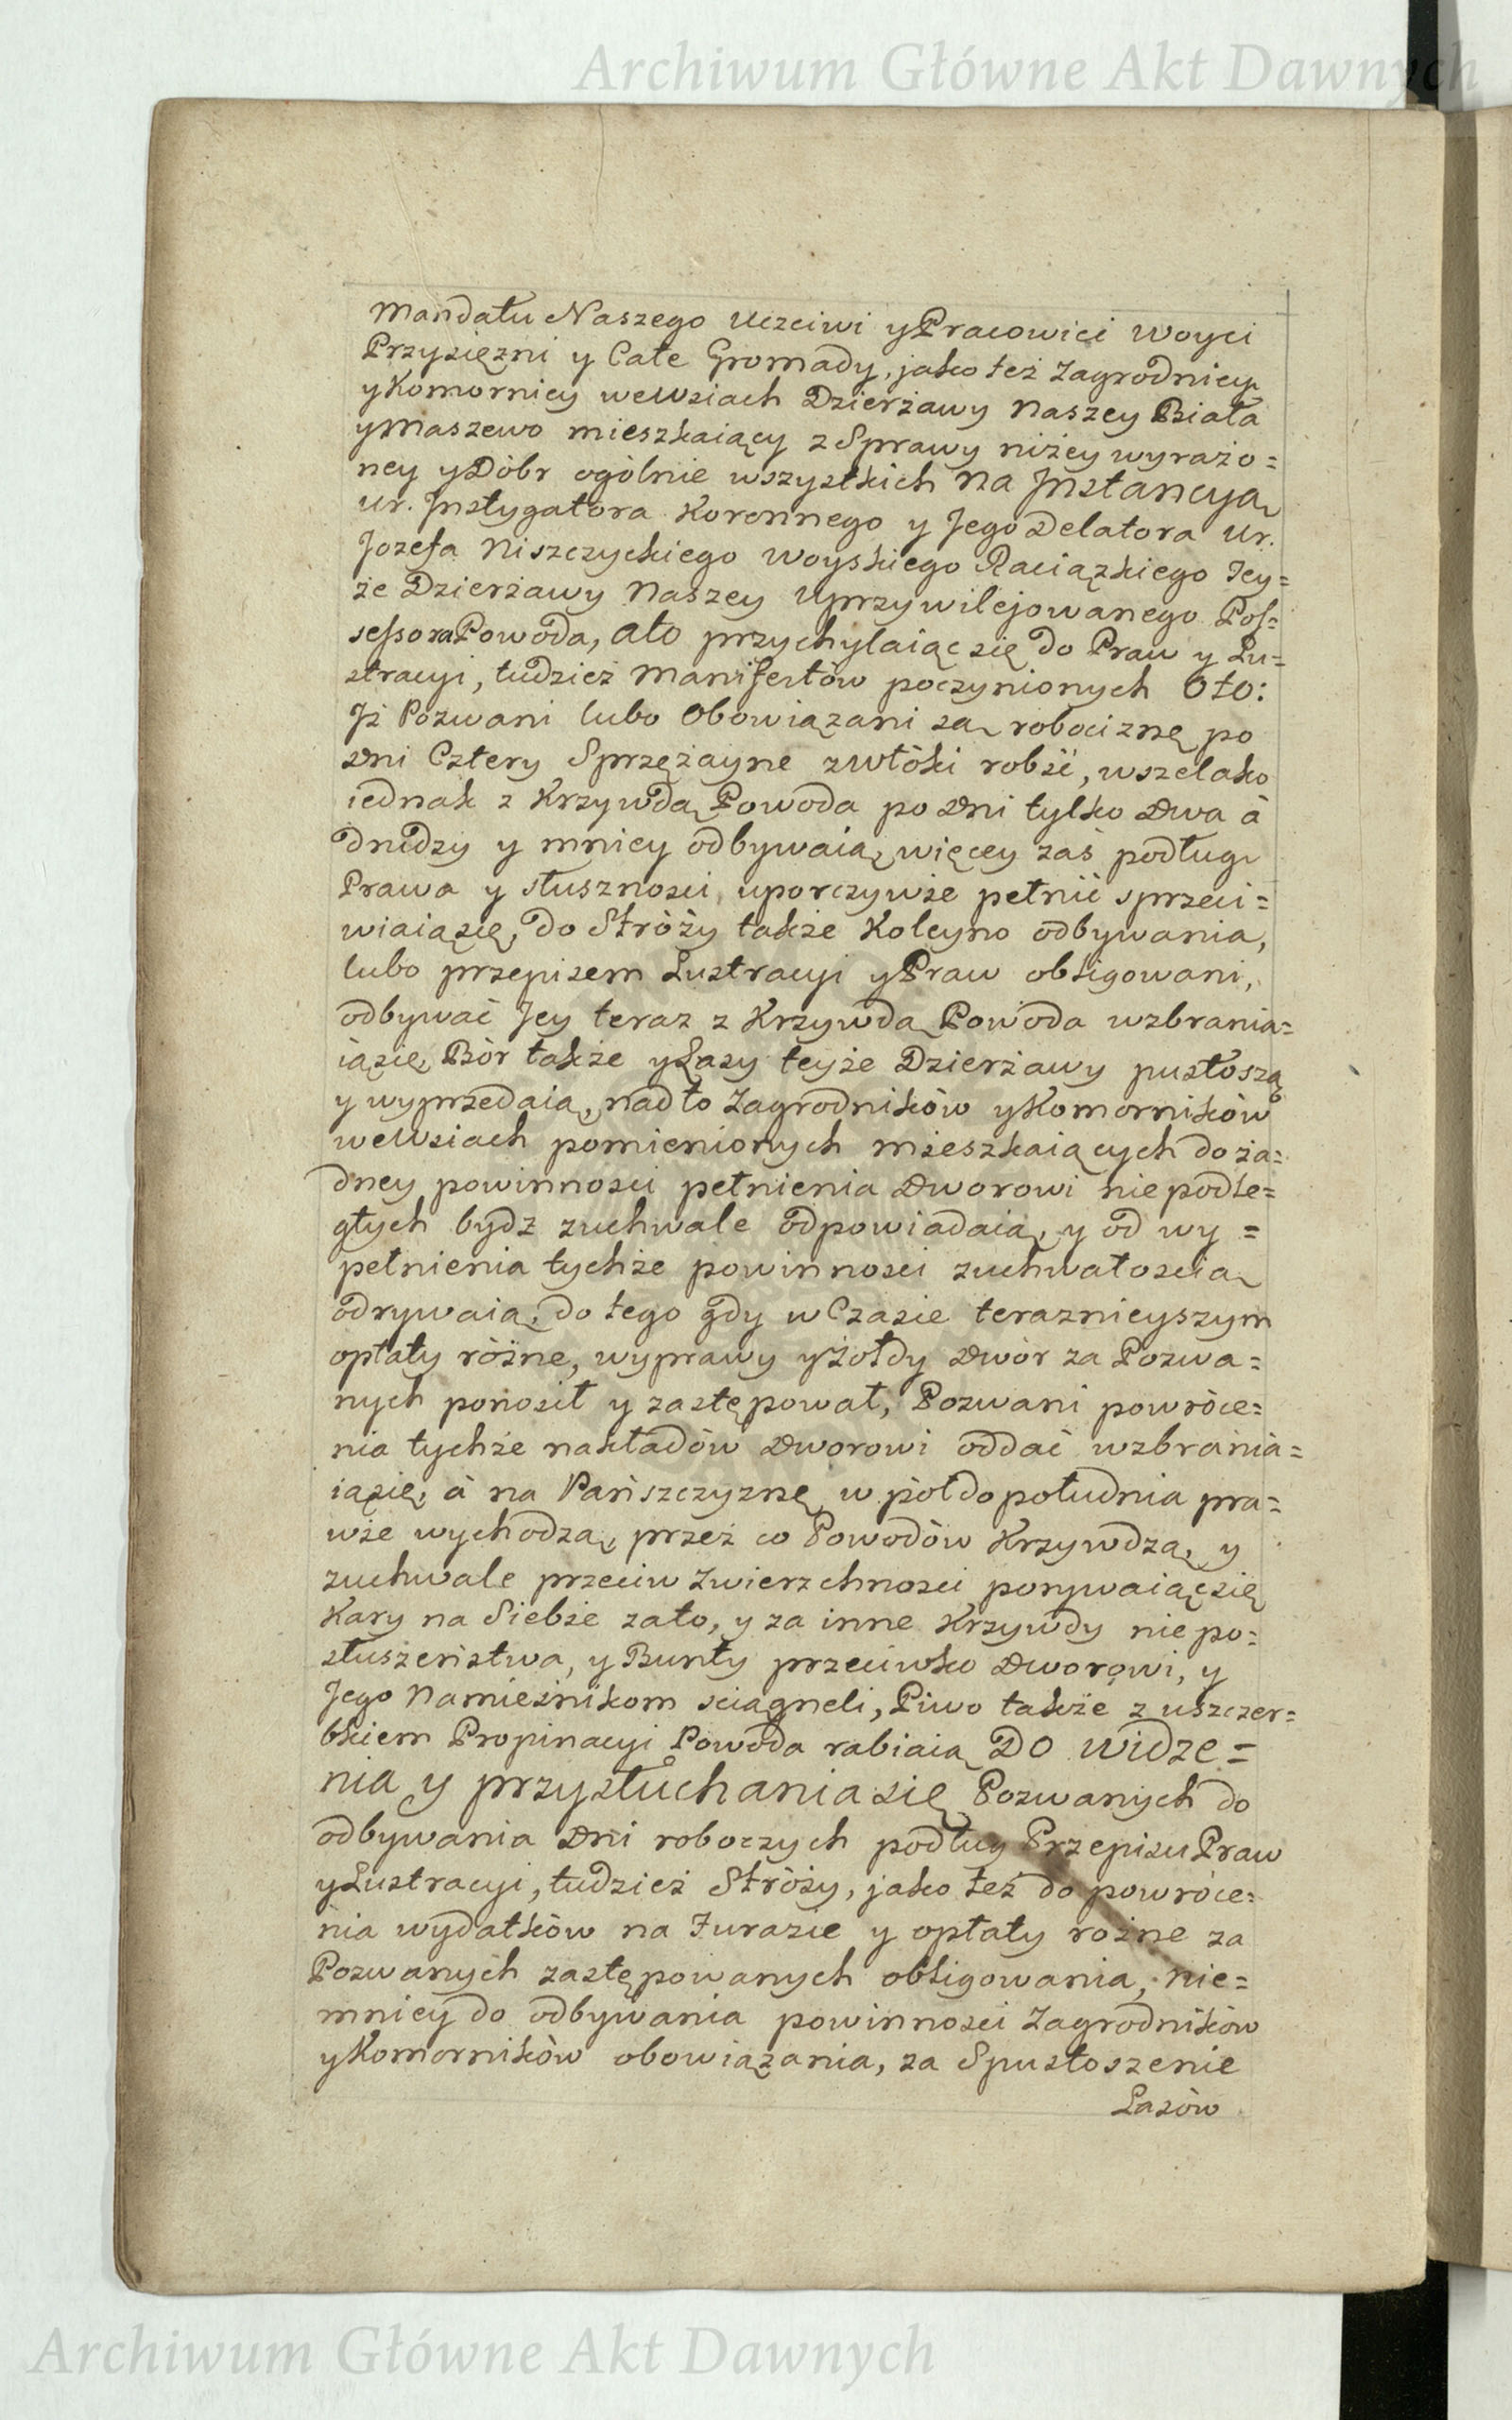 Archiwum Główne Akt Dawnych
Mandatu Naszego Uczciwi y Pracowici Woyci
Przysięzni y Całe Gromady, jako też Zagrodnicy
y Komornicy we Wsiach Dzierżawy Naszey Biała
y Maszewo mieszkaiący z Sprawy niżey wyrażo=
ney y Dóbr ogólnie wszystkich Na Jnstancyą
Ur. Jnstygatora Koronnego y Jego Delatora Ur.
Jozefa Niszczyckiego Woyskiego Raciązkiego Tey=
że Dzierżawy Naszey Uprzywilejowanego Pos=
sessora Powoda, Ato przychylaiąc się do Praw y Lu=
stracyi, tudzież Manifestów poczynionych Oto:
Jż Pozwani lubo Obowiązani są robociznę po
Dni Cztery Sprzężayne z włóki robić, wszelako
iednak z Krzywdą Powoda po Dni tylko Dwa à
drudzy y mniey odbywaią, więcey zaś podług
Prawa y słusznosci uporczywie pełnić sprzeci=
wiaią się, do Stróży także Koleyno odbywania,
lubo przepisem Lustracyi y Praw obligowani,
odbywać Jey teraz z Krzywdą Powoda wzbrania=
ią się, Bór także y Lasy teyże Dzierżawy pustoszą
y wyprzedaią, nadto Zagrodników y Komorników
we Wsiach pomienionych mieszkaiących do ża=
dney powinnosci pełnienia Dworowi niepodle=
głych bydz zuchwale odpowiadaią, y od wy=
pełnienia tychże powinnosci zuchwałoscią
odrywaią, do tego gdy w Czasie teraznieyszym
opłaty różne, wyprawy y Żołdy Dwór za Pozwa=
nych ponosił y zastępował, Pozwani powróce=
nia tychże nakładów Dworowi oddać wzbrania=
ią się, à na Pańszczyznę w pół do południa pra=
wie wychodzą, przez co Powodów Krzywdzą, y
zuchwale przeciw Zwierzchnosci porywaiąc się
Kary na Siebie zato, y za inne Krzywdy niepo=
słuszeństwa, y Bunty przeciwko Dworowi, y
Jego Namieśnikom sciągneli, Piwo także z uszczer=
bkiem Propinacyi Powoda rabiaią Do widze=
nia y przysłuchania się Pozwanych do
odbywania Dni roboczych podług Przepisu Praw
y Lustracyi, tudzież Stróży, jako też do powróce=
nia wydatków na Furazie y opłaty rożne za
Pozwanych zastępowanych obligowania, nie=
mniey do odbywania powinnosci Zagrodników
y Komorników obowiązania, za Spustoszenie
Lasów
Archiwum Główne Akt Dawnych